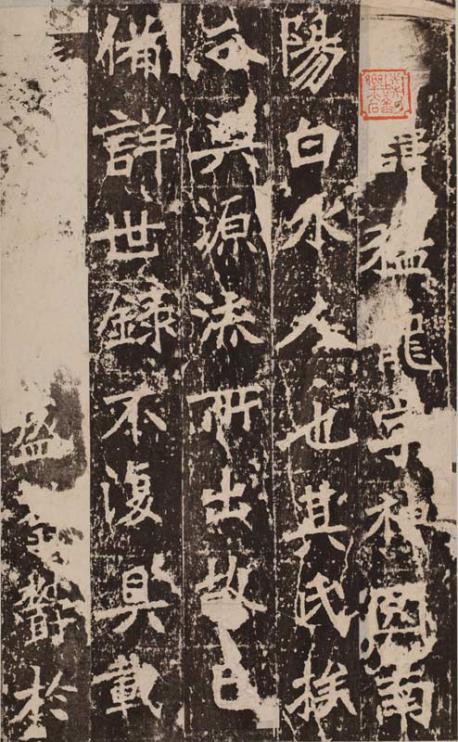 諱猛龍字神冏南
陽白水人也其氏族
分興源流所出故已
備詳世錄不復具載
於